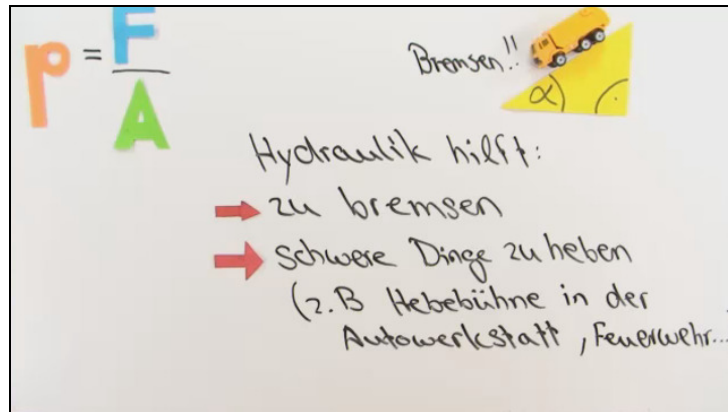 p = F
A
Bremsen!!
α
Hydraulik hilft:
zu bremsen
schwere Dinge zu heben
(z.B Hebebühne in der
Autowerkstatt, Feuerwehr...